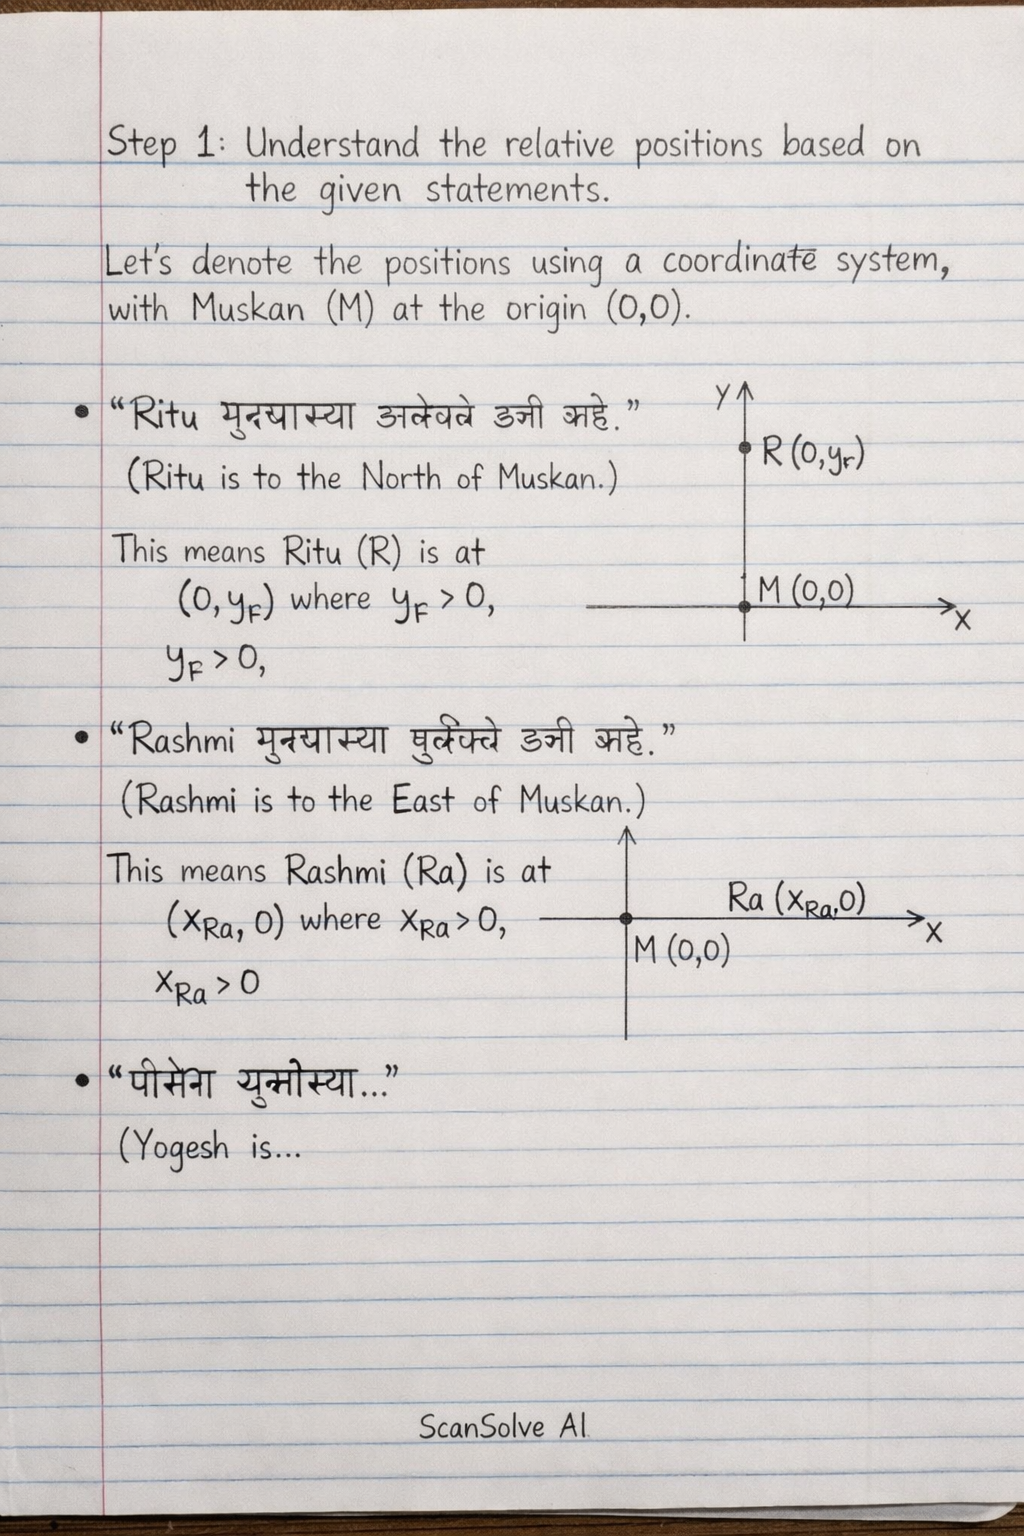 Step 1: Understand the relative positions based on
the given statements.
Let's denote the positions using a coordinate system,
with Muskan (M) at the origin (0,0).
• “Ritu डजी
(Ritu is to the North of Muskan.)
This means Ritu (R) is at
(0, y_F) where y_F > 0,
y_F > 0,
y
R (0, y_r)
M (0,0)
x
• “Rashmi डजी
(Rashmi is to the East of Muskan.)
This means Rashmi (Ra) is at
(x_Ra, 0) where x_Ra > 0,
x_Ra > 0
Ra (x_Ra, 0)
x
M (0,0)
(Yogesh is...
ScanSolve AI